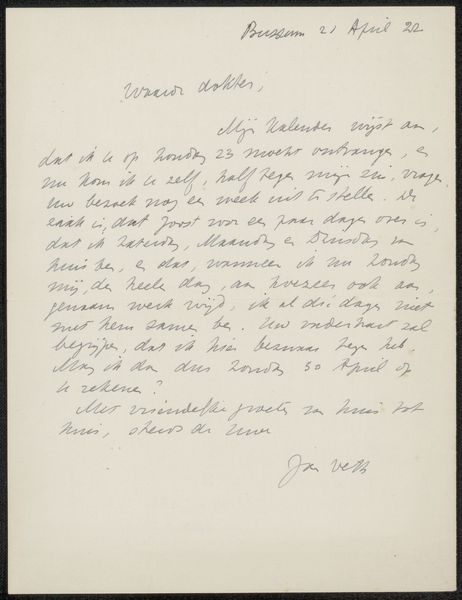 Bussum 21 April 22
Waarde dokter,
Mijn Kalender wijst aan,
dat ik U op Zondag 23 mocht ontvangen, en
nu kom ik U zelf, half tegen mijn zin, vragen
Uw bezoek nog een week uit te stellen. De
zaak is, dat Joost voor een paar dagen over is,
dat ik Zaterdag, Maandag en Dinsdag van
huis ben, en dat, wanneer ik nu Zondag
mij, den heele dag, aan hoezeer ook aan-
genaam werk wijd, ik al die dagen niet
met hem samen ben. Uw vaderhart zal
begrijpen, dat ik hier bezwaar tegen heb.
Mag ik dan dus Zondag 30 April op
U rekenen?
Met vriendelijke groeten van huis tot
huis, steeds de Uwe
Jan Veth